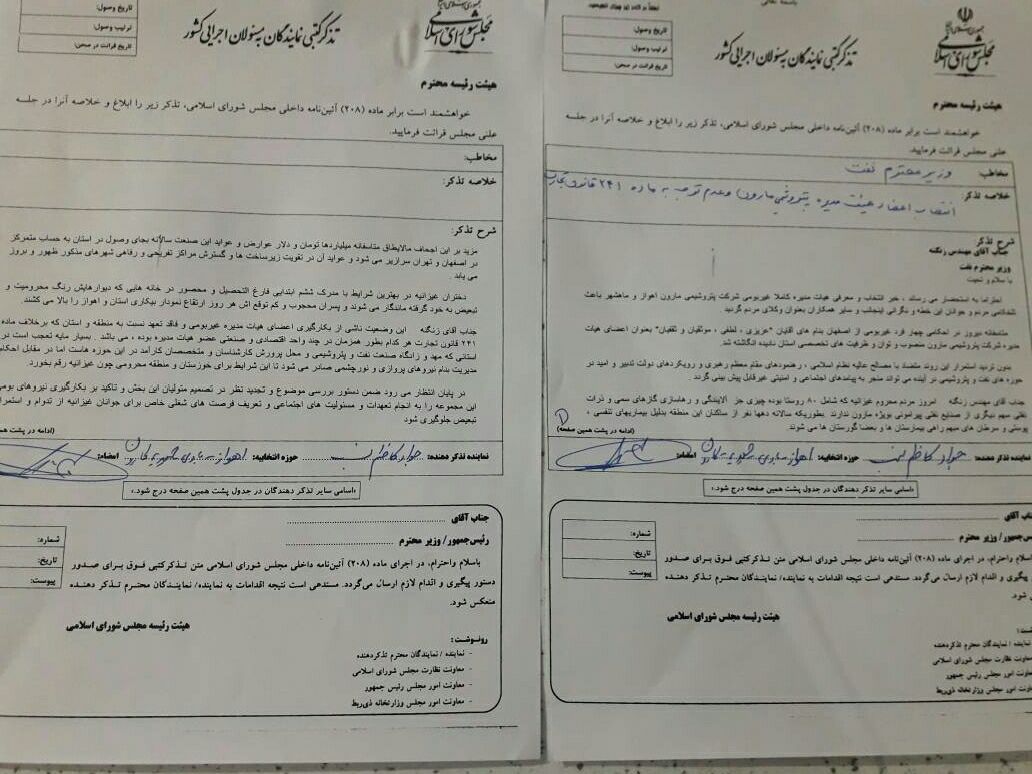 باسمه تعالی
مجلس شورای اسلامی
تذکر کتبی نمایندگان به مسئولان اجرایی کشور
تاریخ وصول:
ترتیب وصول:
تاریخ قرائت در صحن:
هیئت رئیسه محترم
خواهشمند است برابر ماده (۲۰۸) آئین‌نامه داخلی مجلس شورای اسلامی، تذکر زیر را ابلاغ و خلاصه آنرا در جلسه
علنی مجلس قرائت فرمایید.
مخاطب: وزیر محترم نفت
خلاصه تذکر: انتصاب اعضاء هیئت مدیره پتروشیمی مارون و عدم توجه به ماده ۲۴۱ قانون تجارت
شرح تذکر:
جناب آقای مهندس زنگنه
وزیر محترم نفت
با سلام و تحیت
احتراما به استحضار می رساند ، خبر انتخاب و معرفی هیات مدیره کاملا غیربومی شرکت پتروشیمی مارون اهواز و ماهشهر باعث
تلخکامی مردم و جوانان این خطه و نگرانی اینجانب و سایر همکاران بعنوان وکلای مردم گردید
متاسفانه دیروز در احکامی چهار فرد غیربومی از اصفهان بنام های آقایان "عزیزی ، لطفی ، موثقیان و ثقفیان" بعنوان اعضای هیات
مدیره شرکت پتروشیمی مارون منصوب و توان و ظرفیت های تخصصی استان نادیده انگاشته شد.
بدون تردید استمرار این روند متضاد با مصالح عالیه نظام اسلامی ، رهنمودهای مقام معظم رهبری و رویکردهای دولت تدبیر و امید در
حوزه های نفت و پتروشیمی در آینده می تواند منجر به پیامدهای اجتماعی و امنیتی غیرقابل پیش بینی گردد.
جناب آقای مهندس زنگنه امروز مردم محروم غیزانیه که شامل ۸۰ روستا بوده چیزی جز آلایندگی و رهاسازی گازهای سمی و ذرات
نفتی سهم دیگری از صنایع نفتی پیرامونی بویژه مارون ندارند بطوریکه سالانه دهها نفر از ساکنان این منطقه بدلیل بیماریهای تنفسی ،
پوستی و سرطان های مبهم راهی بیمارستان ها و بعضا گورستان ها می شوند.
(ادامه در پشت همین صفحه) ۱
نماینده تذکر دهنده: جواد کاظم نسب حوزه انتخابیه: اهواز باوی حمیدیه کارون امضاء:
«اسامی سایر تذکر دهندگان در جدول پشت همین صفحه درج شود.»
جناب آقای
رئیس‌جمهور/ وزیر محترم
شماره:
تاریخ:
پیوست:
باسلام واحترام، در اجرای ماده (۲۰۸) آئین‌نامه داخلی مجلس شورای اسلامی متن تذکرکتبی فوق برای صدور
پیگیری و اقدام لازم ارسال می‌گردد. مستدعی است نتیجه اقدامات به نماینده/ نمایندگان محترم تذکر دهنده
شود.
هیئت رئیسه مجلس شورای اسلامی
نماینده / نمایندگان محترم تذکردهنده
معاونت نظارت مجلس شورای اسلامی
معاونت امور مجلس رئیس جمهور
معاونت امور مجلس وزارتخانه ذی‌ربط
جمهوری اسلامی ایران
مجلس شورای اسلامی
تذکر کتبی نمایندگان به مسئولان اجرایی کشور
تاریخ وصول:
ترتیب وصول:
تاریخ قرائت در صحن:
هیئت رئیسه محترم
خواهشمند است برابر ماده (۲۰۸) آئین‌نامه داخلی مجلس شورای اسلامی، تذکر زیر را ابلاغ و خلاصه آنرا در جلسه
علنی مجلس قرائت فرمایید.
مخاطب:
خلاصه تذکر:
شرح تذکر:
مزید بر این اجحاف مالایطاق متاسفانه میلیاردها تومان و دلار عوارض و عواید این صنعت سالانه بجای وصول در استان به حساب متمرکز
در اصفهان و تهران سرازیر می شود و عواید آن در تقویت زیرساخت ها و گسترش مراکز تفریحی و رفاهی شهرهای مذکور ظهور و بروز
می یابد .
دختران غیزانیه در بهترین شرایط با مدرک ششم ابتدایی فارغ التحصیل و محصور در خانه هایی که دیوارهایش رنگ محرومیت و
تبعیض به خود گرفته ماندگار می شوند و پسران محجوب و کم توقع اش هر روز ارتفاع نمودار بیکاری استان و اهواز را بالا می کشند.
جناب آقای زنگنه این وضعیت ناشی از بکارگیری اعضای هیات مدیره غیربومی و فاقد تعهد نسبت به منطقه و استان که برخلاف ماده
۲۴۱ قانون تجارت هر کدام بطور همزمان در چند واحد اقتصادی و صنعتی عضو هیات مدیره بوده ، می باشد . بسیار مایه تعجب است در
استانی که مهد و زادگاه صنعت نفت و پتروشیمی و محل پرورش کارشناسان و متخصصان کارآمد در این حوزه هاست اما در مقابل احکام
مدیریت بنام نیروهای پروازی و نورچشمی صادر می شود تا این شرایط برای خوزستان و منطقه محرومی چون غیزانیه رقم بخورد.
در پایان انتظار می رود ضمن دستور بررسی موضوع و تجدید نظر در تصمیم متولیان این بخش و تاکید بر بکارگیری نیروهای بومی
این مجموعه را به انجام تعهدات و مسئولیت های اجتماعی و تعریف فرصت های شغلی خاص برای جوانان غیزانیه از تداوم و استمرار
تبعیض جلوگیری شود
(ادامه در پشت همین
نماینده تذکر دهنده: جواد کاظم نسب حوزه انتخابیه: اهواز باوی حمیدیه کارون امضاء:
«اسامی سایر تذکر دهندگان در جدول پشت همین صفحه درج شود.»
جناب آقای
رئیس‌جمهور/ وزیر محترم
شماره:
تاریخ:
پیوست:
باسلام واحترام، در اجرای ماده (۲۰۸) آئین‌نامه داخلی مجلس شورای اسلامی متن تذکرکتبی فوق برای صدور
دستور پیگیری و اقدام لازم ارسال می‌گردد. مستدعی است نتیجه اقدامات به نماینده/ نمایندگان محترم تذکر دهنده
منعکس شود.
هیئت رئیسه مجلس شورای اسلامی
رونوشت:
- نماینده / نمایندگان محترم تذکردهنده
- معاونت نظارت مجلس شورای اسلامی
- معاونت امور مجلس رئیس جمهور
- معاونت امور مجلس وزارتخانه ذی‌ربط